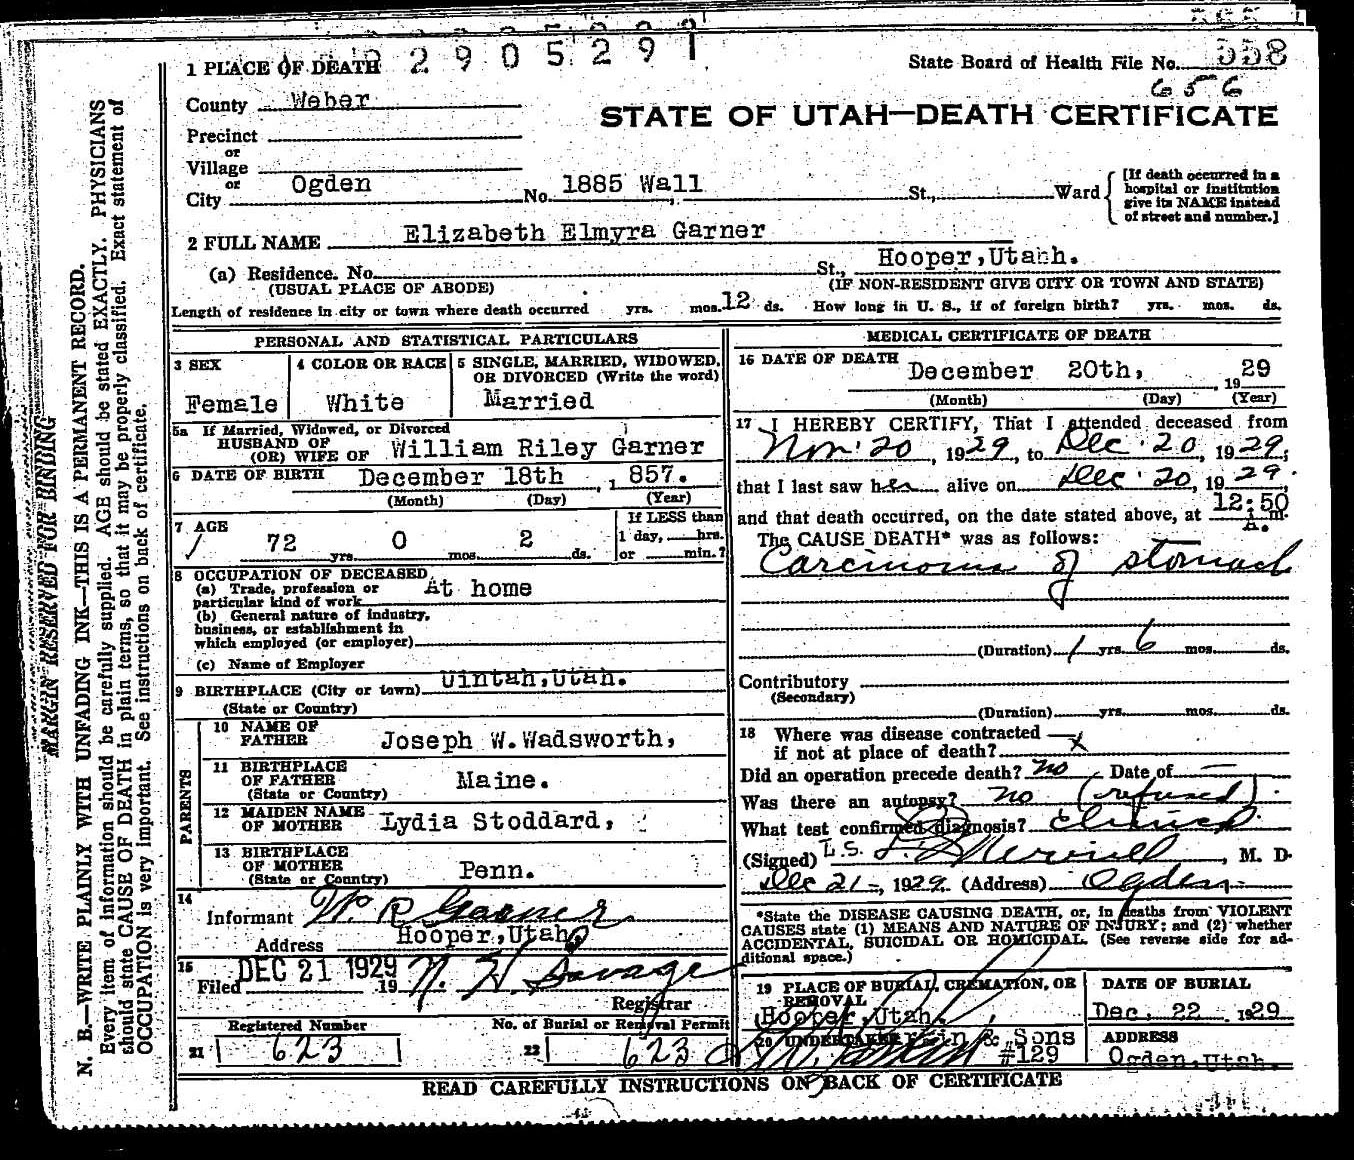 2905291
1 PLACE OF DEATH
State Board of Health File No. 558
656
County Weber
STATE OF UTAH—DEATH CERTIFICATE
Precinct
or
Village
or
City Ogden No. 1885 Wall St., Ward
[If death occurred in a hospital or institution give its NAME instead of street and number.]
2 FULL NAME Elizabeth Elmyra Garner
(a) Residence. No. St., Hooper, Utah.
(USUAL PLACE OF ABODE) (IF NON-RESIDENT GIVE CITY OR TOWN AND STATE)
Length of residence in city or town where death occurred yrs. mos. 12 ds. How long in U. S., if of foreign birth? yrs. mos. ds.
PERSONAL AND STATISTICAL PARTICULARS
3 SEX
Female
4 COLOR OR RACE
White
5 SINGLE, MARRIED, WIDOWED, OR DIVORCED (Write the word)
Married
5a If Married, Widowed, or Divorced
HUSBAND OF
(OR) WIFE OF William Riley Garner
6 DATE OF BIRTH December 18th , 1857.
(Month) (Day) (Year)
7 AGE
72 yrs. 0 mos. 2 ds.
If LESS than
1 day, hrs.
or min.?
8 OCCUPATION OF DECEASED
(a) Trade, profession or
particular kind of work At home
(b) General nature of industry,
business, or establishment in
which employed (or employer)
(c) Name of Employer
9 BIRTHPLACE (City or town) Uintah, Utah.
(State or Country)
PARENTS
10 NAME OF FATHER Joseph W. Wadsworth,
11 BIRTHPLACE OF FATHER Maine.
(State or Country)
12 MAIDEN NAME OF MOTHER Lydia Stoddard,
13 BIRTHPLACE OF MOTHER Penn.
(State or Country)
14
Informant W. R Garner
Address Hooper, Utah,
15
Filed DEC 21 1929 19 N. H Savage
Registrar
Registered Number
21 623
No. of Burial or Removal Permit
22 623
MEDICAL CERTIFICATE OF DEATH
16 DATE OF DEATH December 20th, , 1929
(Month) (Day) (Year)
17 I HEREBY CERTIFY, That I attended deceased from
Nov. 20 , 1929, to Dec. 20, 1929;
that I last saw her alive on Dec. 20, 1929.
and that death occurred, on the date stated above, at 12:50 A. m.
The CAUSE DEATH* was as follows:
Carcinoma of stomach
(Duration) 1 yrs. 6 mos. ds.
Contributory
(Secondary)
(Duration) yrs. mos. ds.
18 Where was disease contracted
if not at place of death? x
Did an operation precede death? no Date of —
Was there an autopsy? no (refused).
What test confirmed diagnosis? Clinical
(Signed) L.S. Merrill , M. D.
Dec 21-, 1929. (Address) Ogden
*State the DISEASE CAUSING DEATH, or, in deaths from VIOLENT
CAUSES state (1) MEANS AND NATURE OF INJURY; and (2) whether
ACCIDENTAL, SUICIDAL OR HOMICIDAL. (See reverse side for additional space.)
19 PLACE OF BURIAL, CREMATION, OR REMOVAL
Hooper, Utah.
DATE OF BURIAL
Dec. 22 , 1929
20 UNDERTAKER & Sons
#129
ADDRESS
Ogden, Utah.
READ CAREFULLY INSTRUCTIONS ON BACK OF CERTIFICATE
MARGIN RESERVED FOR BINDING
N. B.—WRITE PLAINLY WITH UNFADING INK—THIS IS A PERMANENT RECORD.
Every item of information should be carefully supplied. AGE should be stated EXACTLY. PHYSICIANS
should state CAUSE OF DEATH in plain terms, so that it may be properly classified. Exact statement of
OCCUPATION is very important. See instructions on back of certificate.